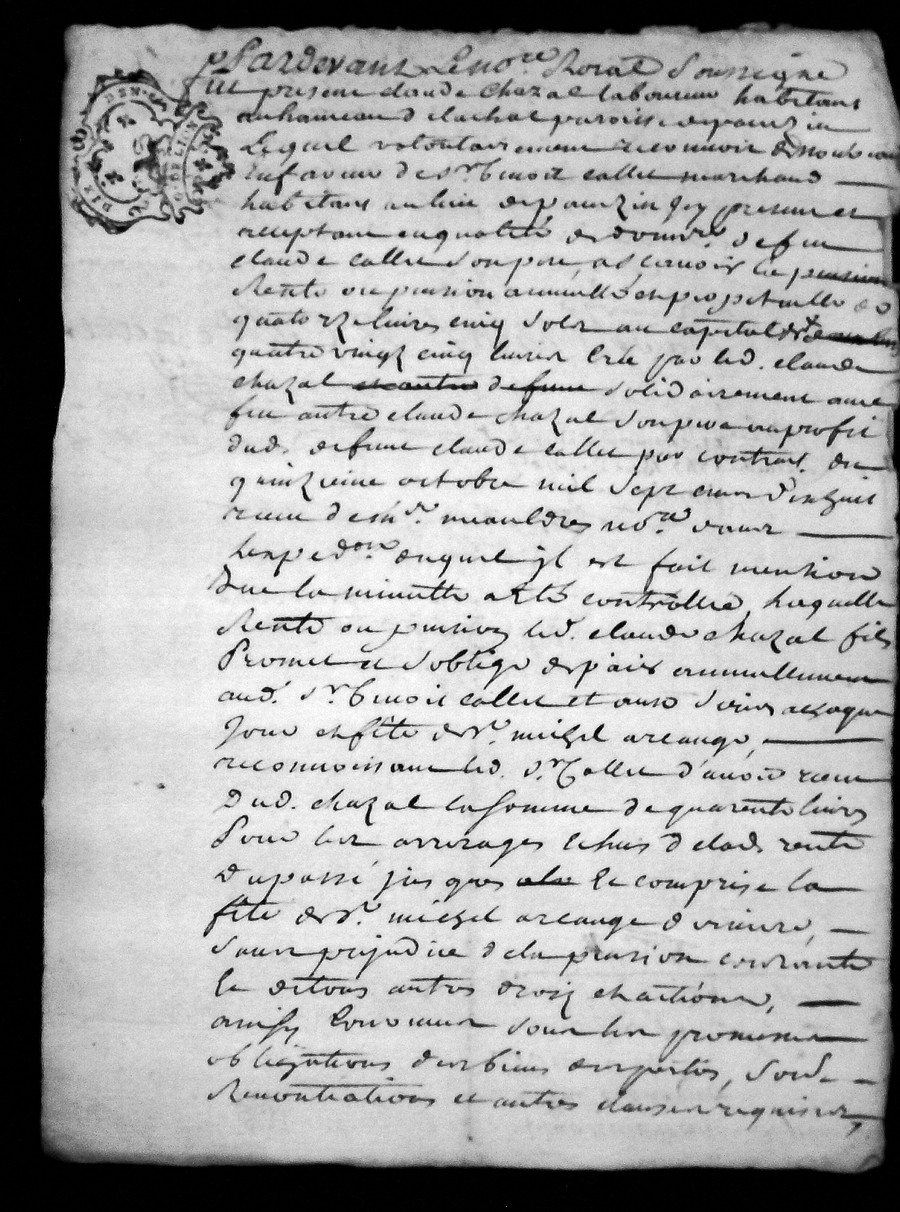 Pardevant Le no.re Royal Soussigné
fut present claude Chazal laboureur habitant
au hameau de lachal paroisse de
Lequel volontairement reconnoit
en faveur de Sr. Benoit Collet marchand
habitant au lieu de icy present et
acceptant en qualité de de feu
claude Collet Son pere, ascavoir la pension
Rente ou pension annuelle et perpetuelle de
quatorze livres cinq Sols au capital de
quatre vingt cinq livres Crée par led. claude
chazal Solidairement avec
feu autre claude chazal Son pere au profit
dud. defunt claude Collet par contrat du
quinzieme octobre mil Sept cens dixhuit
receu de Me. no.re
duquel il est fait mention
que la minutte a eté controllée, Laquelle
Rente ou pension led. claude chazal fils
Promet et S'oblige de paier annuellement
aud. Sr. Benoit Collet et aux Siens a chaque
Jour et fête de St. michel arcange,
reconnoissant led. Sr. Collet d'avoir receu
Dud. chazal la Somme de quarente livres
Pour les arrerages Echus de lad. rente
Du passé jusques Et comprise la
fête de St. michel arcange derniere,
Sans prejudice de la pension courante
Et de tous autres droitz et actions,
ainsy Convenu Sous les promesses
obligations de biens despens, Soub.
Renontiations et autres clauses requises,
DEN.
DE LION
DIX